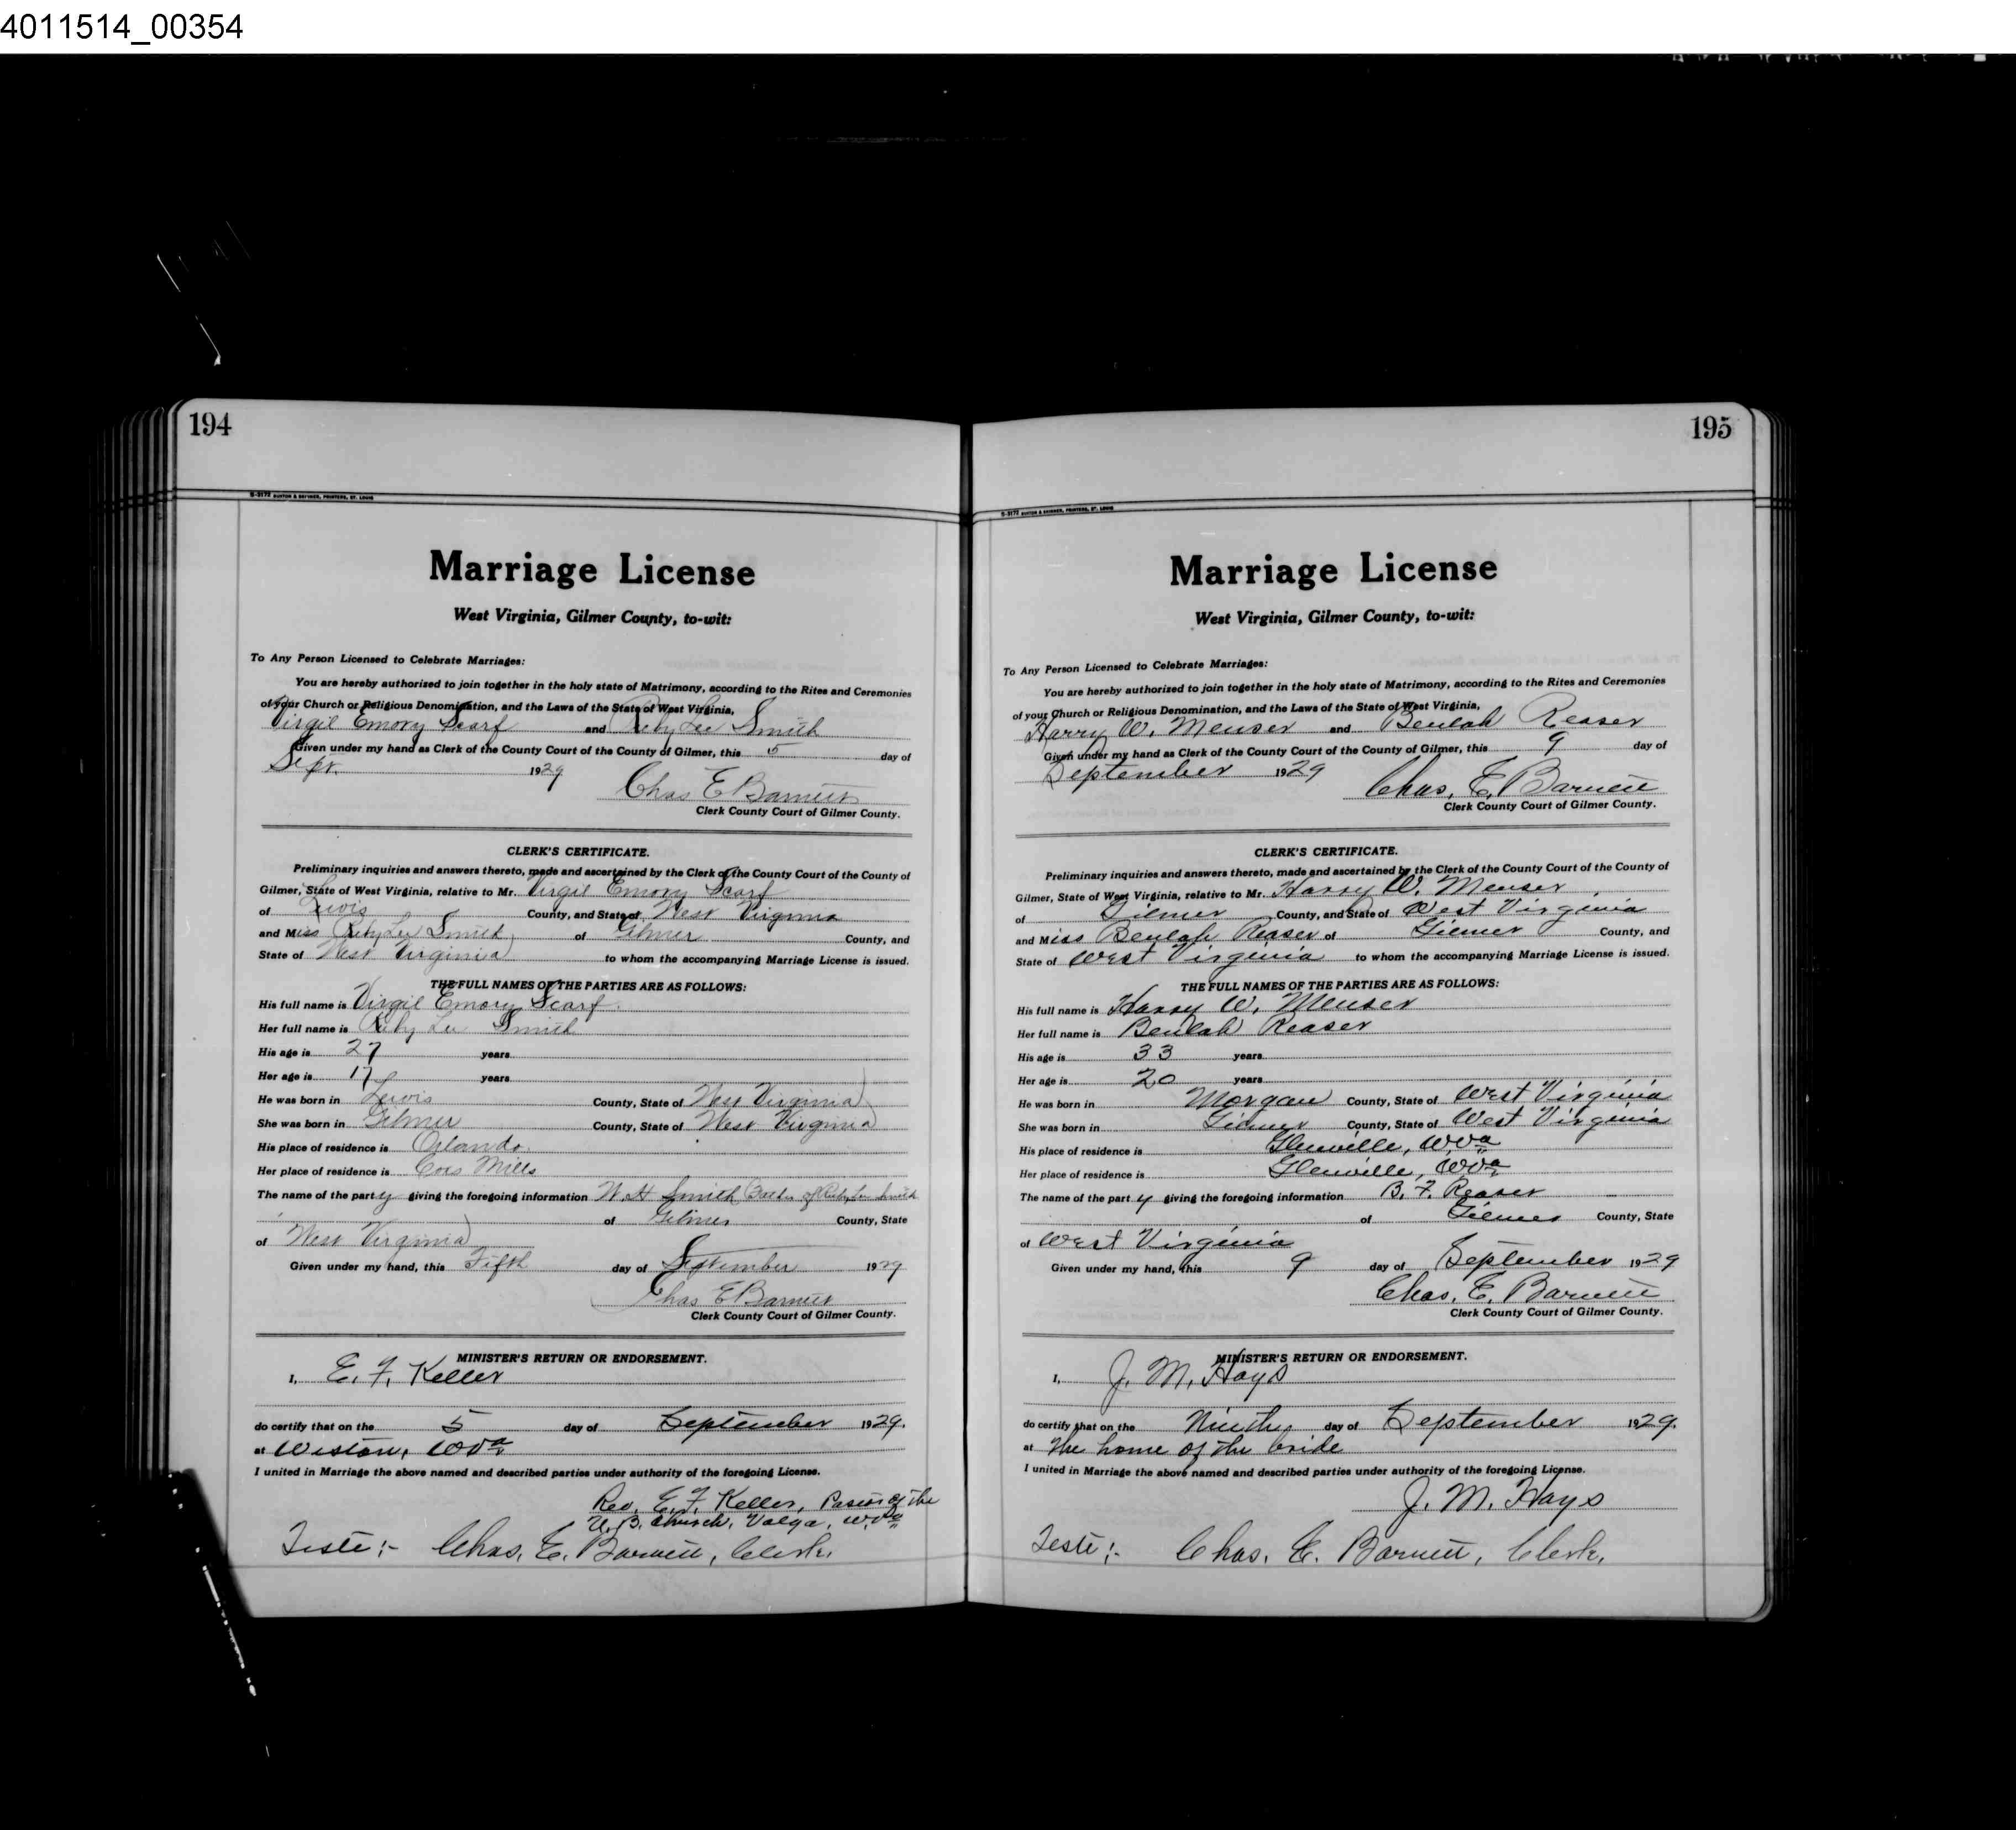 4011514_00354
194
Marriage License
West Virginia, Gilmer County, to-wit:
To Any Person Licensed to Celebrate Marriages:
You are hereby authorized to join together in the holy state of Matrimony, according to the Rites and Ceremonies
of your Church or Religious Denomination, and the Laws of the State of West Virginia,
Virgil Emory Scarf and Ruby Lee Smith
Given under my hand as Clerk of the County Court of the County of Gilmer, this 5 day of
Sept. 1929
Chas E Barnett
Clerk County Court of Gilmer County.
CLERK'S CERTIFICATE.
Preliminary inquiries and answers thereto, made and ascertained by the Clerk of the County Court of the County of
Gilmer, State of West Virginia, relative to Mr. Virgil Emory Scarf
of Lewis County, and State of West Virginia
and Miss Ruby Lee Smith of Gilmer County, and
State of West Virginia to whom the accompanying Marriage License is issued.
THE FULL NAMES OF THE PARTIES ARE AS FOLLOWS:
His full name is Virgil Emory Scarf
Her full name is Ruby Lee Smith
His age is 27 years
Her age is 17 years
He was born in Lewis County, State of West Virginia
She was born in Gilmer County, State of West Virginia
His place of residence is Orlando
Her place of residence is Coxs Mills
The name of the party giving the foregoing information W. H. Smith of Ruby Lee Smith
of Gilmer County, State
of West Virginia
Given under my hand, this Fifth day of September 1929
Chas E Barnett
Clerk County Court of Gilmer County.
MINISTER'S RETURN OR ENDORSEMENT.
I, E. F. Keller
do certify that on the 5 day of September 1929.
at Weston, W Va
I united in Marriage the above named and described parties under authority of the foregoing License.
Rev. E. F. Keller, Pastor of the
U. B. Church, Volga, W. Va
Teste:- Chas. E. Barnett, Clerk.
195
Marriage License
West Virginia, Gilmer County, to-wit:
To Any Person Licensed to Celebrate Marriages:
You are hereby authorized to join together in the holy state of Matrimony, according to the Rites and Ceremonies
of your Church or Religious Denomination, and the Laws of the State of West Virginia,
Harry W. Menser and Beulah Reaser
Given under my hand as Clerk of the County Court of the County of Gilmer, this 9 day of
September 1929
Chas. E. Barnett
Clerk County Court of Gilmer County.
CLERK'S CERTIFICATE.
Preliminary inquiries and answers thereto, made and ascertained by the Clerk of the County Court of the County of
Gilmer, State of West Virginia, relative to Mr. Harry W. Menser
of Gilmer County, and State of West Virginia
and Miss Beulah Reaser of Gilmer County, and
State of West Virginia to whom the accompanying Marriage License is issued.
THE FULL NAMES OF THE PARTIES ARE AS FOLLOWS:
His full name is Harry W. Menser
Her full name is Beulah Reaser
His age is 33 years
Her age is 20 years
He was born in Morgan County, State of West Virginia
She was born in Gilmer County, State of West Virginia
His place of residence is Glenville, W Va
Her place of residence is Glenville, W Va
The name of the party giving the foregoing information B. F. Reaser
of Gilmer County, State
of West Virginia
Given under my hand, this 9 day of September 1929
Chas. E. Barnett
Clerk County Court of Gilmer County.
MINISTER'S RETURN OR ENDORSEMENT.
I, J. M. Hays
do certify that on the Ninth day of September 1929.
at the home of the bride
I united in Marriage the above named and described parties under authority of the foregoing License.
J. M. Hays
Teste:- Chas. E. Barnett, Clerk.